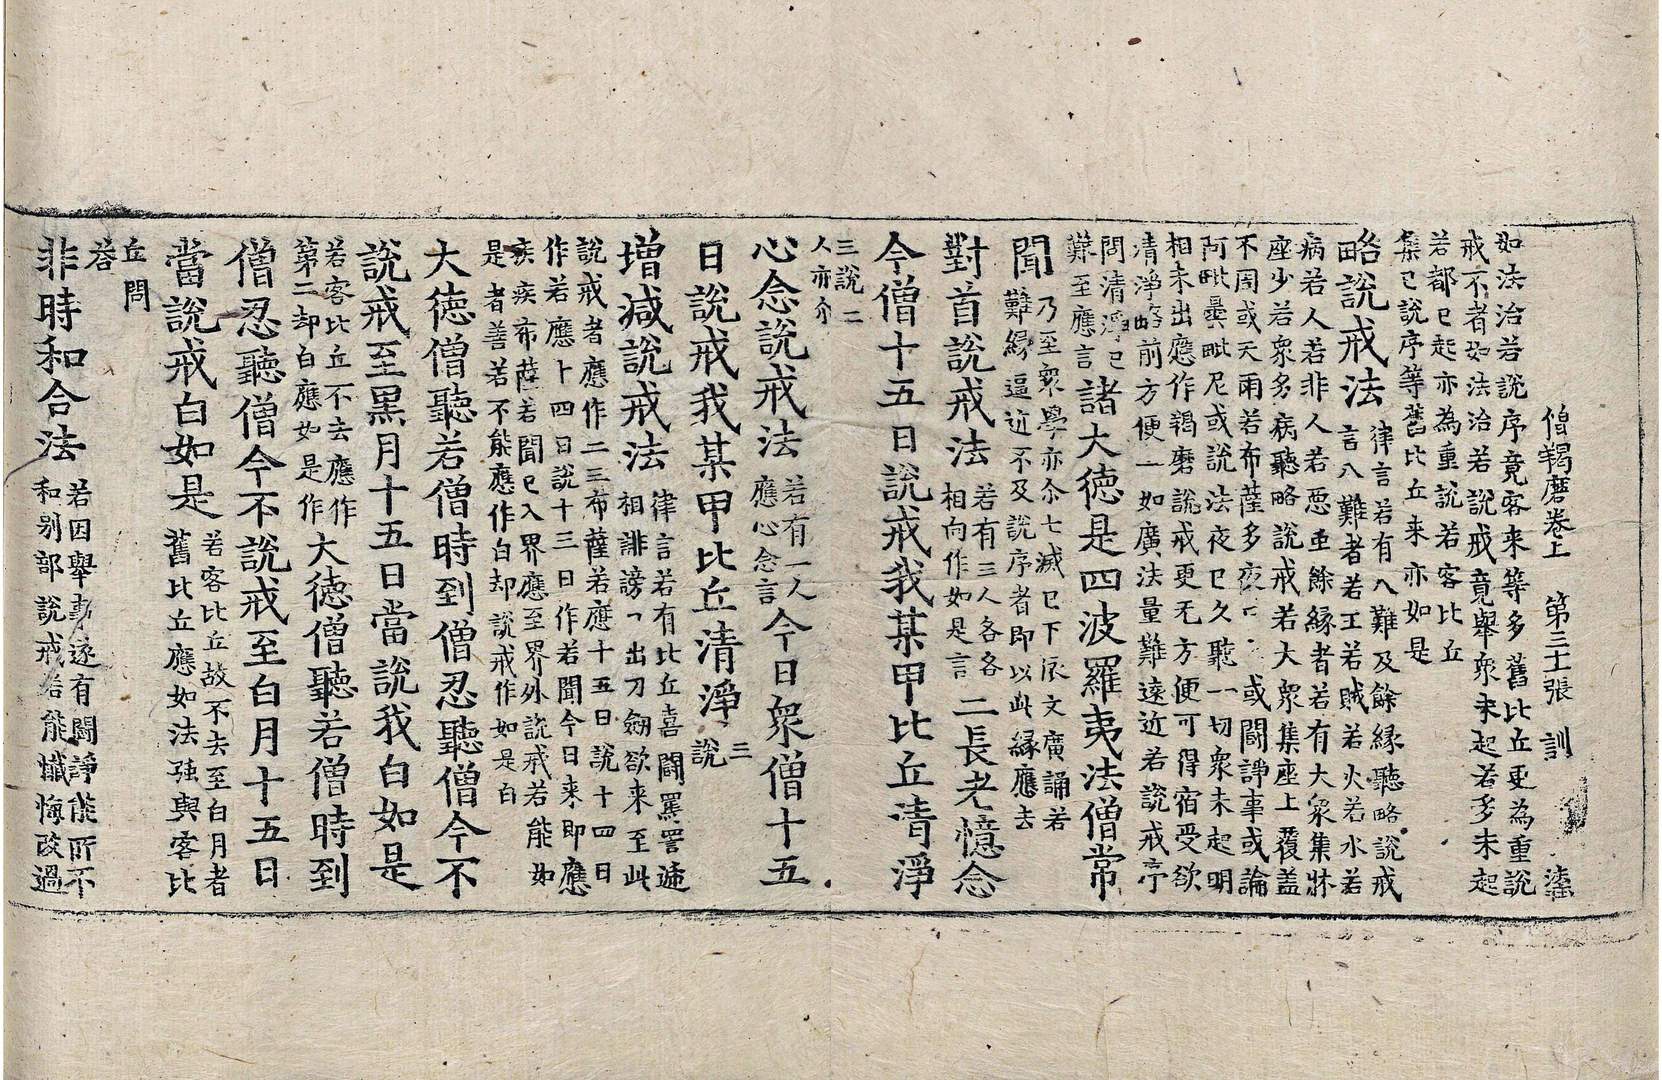 僧羯磨卷上 第三十張 訓
如法治若說序竟客來等多舊比丘更為重說
戒不者如法治若說戒竟舉衆未起若多未起
若都已起亦為重說若客比丘
集已說序等舊比丘来亦如是
略說戒法 律言若有八難及餘縁聽略說戒
言八難者若王若賊若火若水若
病若人若非人若惡虫餘縁者若有大衆集牀
座少若衆多病聽略說戒若大衆集座上覆盖
不周或天雨若布薩多夜 或鬪諍事或論
阿毗曇毗尼或說法夜已久聽一切衆未起明
相未出應作羯磨說戒更无方便可得宿受欲
清淨略 前方便一如廣法量難遠近若說戒序
問清淨已
難至應言 諸大徳是四波羅夷法僧常
聞 乃至衆學亦尒七滅已下依文廣誦若
難縁逼近不及說序者即以此縁應去
對首說戒法 若有三人各各
相向作如是言 二長老憶念
今僧十五日說戒我某甲比丘清淨
三說二
人亦尒
心念說戒法 若有一人
應心念言 今日衆僧十五
日說戒我某甲比丘清淨 三
說
増减說戒法 律言若有比丘喜鬪罵詈逓
相誹謗口出刀劒欲来至此
說戒者應作二三布薩若應十五日說十四日
作若應十四日說十三日作若聞今日来即應
疾疾布薩若聞已入界應至界外說戒若能如
是者善若不能應作白却說戒作如是白
大徳僧聽若僧時到僧忍聽僧今不
說戒至黒月十五日當說戒白如是
若客比丘不去應作
第二却白應如是作 大德僧聽若僧時到
僧忍聽僧今不說戒至白月十五日
當說戒白如是 若客比丘故不去至白月者
舊比丘應如法强與客比
丘問
荅
非時和合法 若因舉事逐有鬪諍能所不
和别部說戒 能懴悔改過